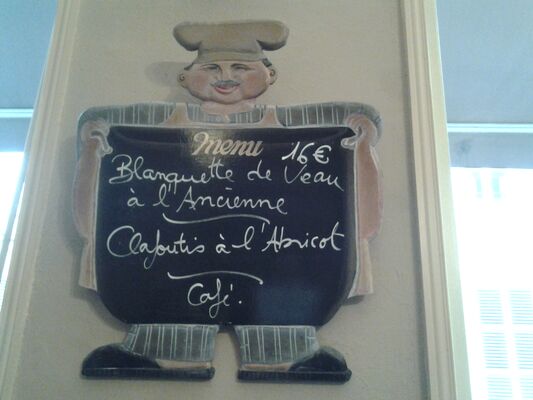 Menu 16€
Blanquette de Veau
à l'Ancienne
Clafoutis à l'Abricot
Café.